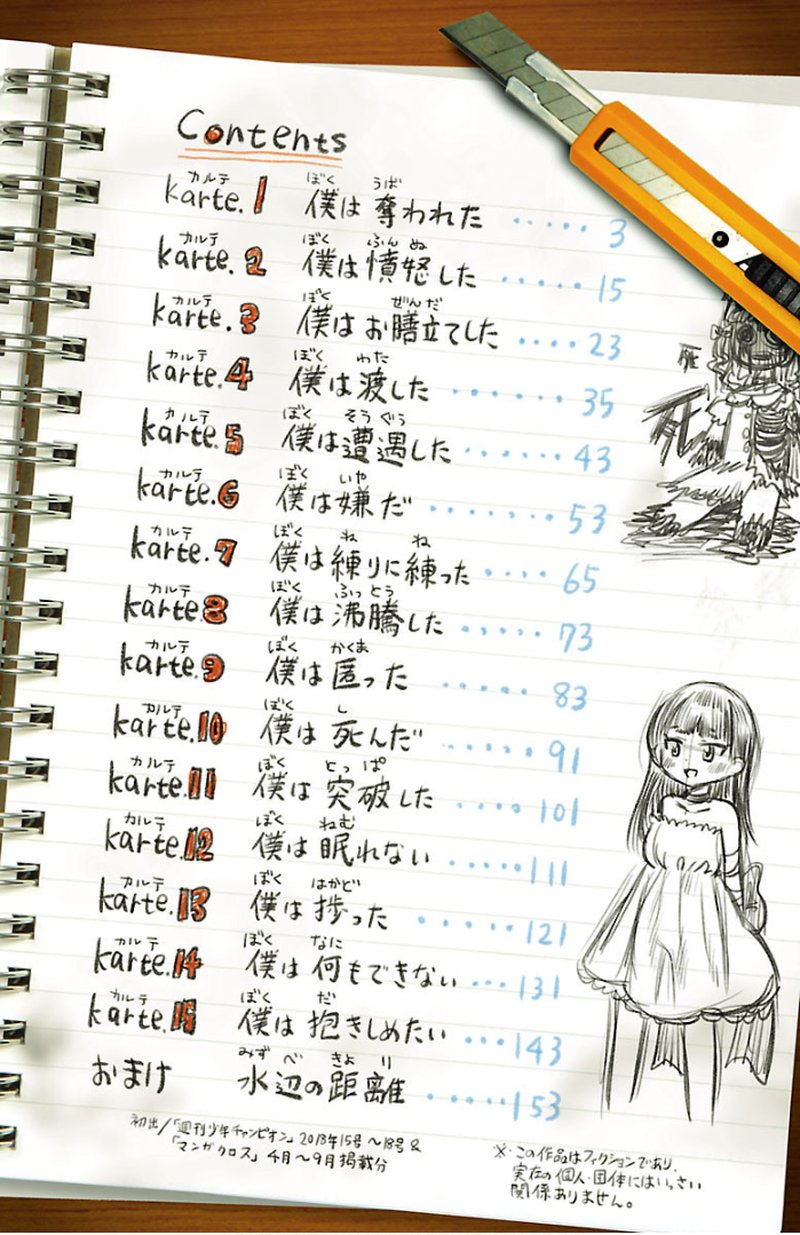 Contents
カルテ
karte.1 僕は奪われた ・・・・・ 3
ぼく うば
カルテ
karte.2 僕は憤怒した ・・・・・ 15
ぼく ふんぬ
カルテ
karte.3 僕はお膳立てした ・・・・ 23
ぼく ぜんだ
カルテ
karte.4 僕は渡した ・・・・・・ 35
ぼく わた
カルテ
karte.5 僕は遭遇した ・・・・・ 43
ぼく そうぐう
カルテ
karte.6 僕は嫌だ ・・・・・・・ 53
ぼく いや
カルテ
karte.7 僕は練りに練った ・・・・ 65
ぼく ね ね
カルテ
karte.8 僕は沸騰した ・・・・・ 73
ぼく ふっとう
カルテ
karte.9 僕は匿った ・・・・・・ 83
ぼく かくま
カルテ
karte.10 僕は死んだ ・・・・・・ 91
ぼく し
カルテ
karte.11 僕は突破した ・・・・・ 101
ぼく とっぱ
カルテ
karte.12 僕は眠れない ・・・・・ 111
ぼく ねむ
カルテ
karte.13 僕は捗った ・・・・・・ 121
ぼく はかど
カルテ
karte.14 僕は何もできない ・・・ 131
ぼく なに
カルテ
karte.15 僕は抱きしめたい ・・・ 143
ぼく だ
おまけ 水辺の距離 ・・・・・ 153
みずべ きょり
初出/「週刊少年チャンピオン」2018年15号〜18号&
「マンガクロス」4月〜9月掲載分
※・この作品はフィクションであり、
実在の個人・団体にはいっさい
関係ありません。
死
死